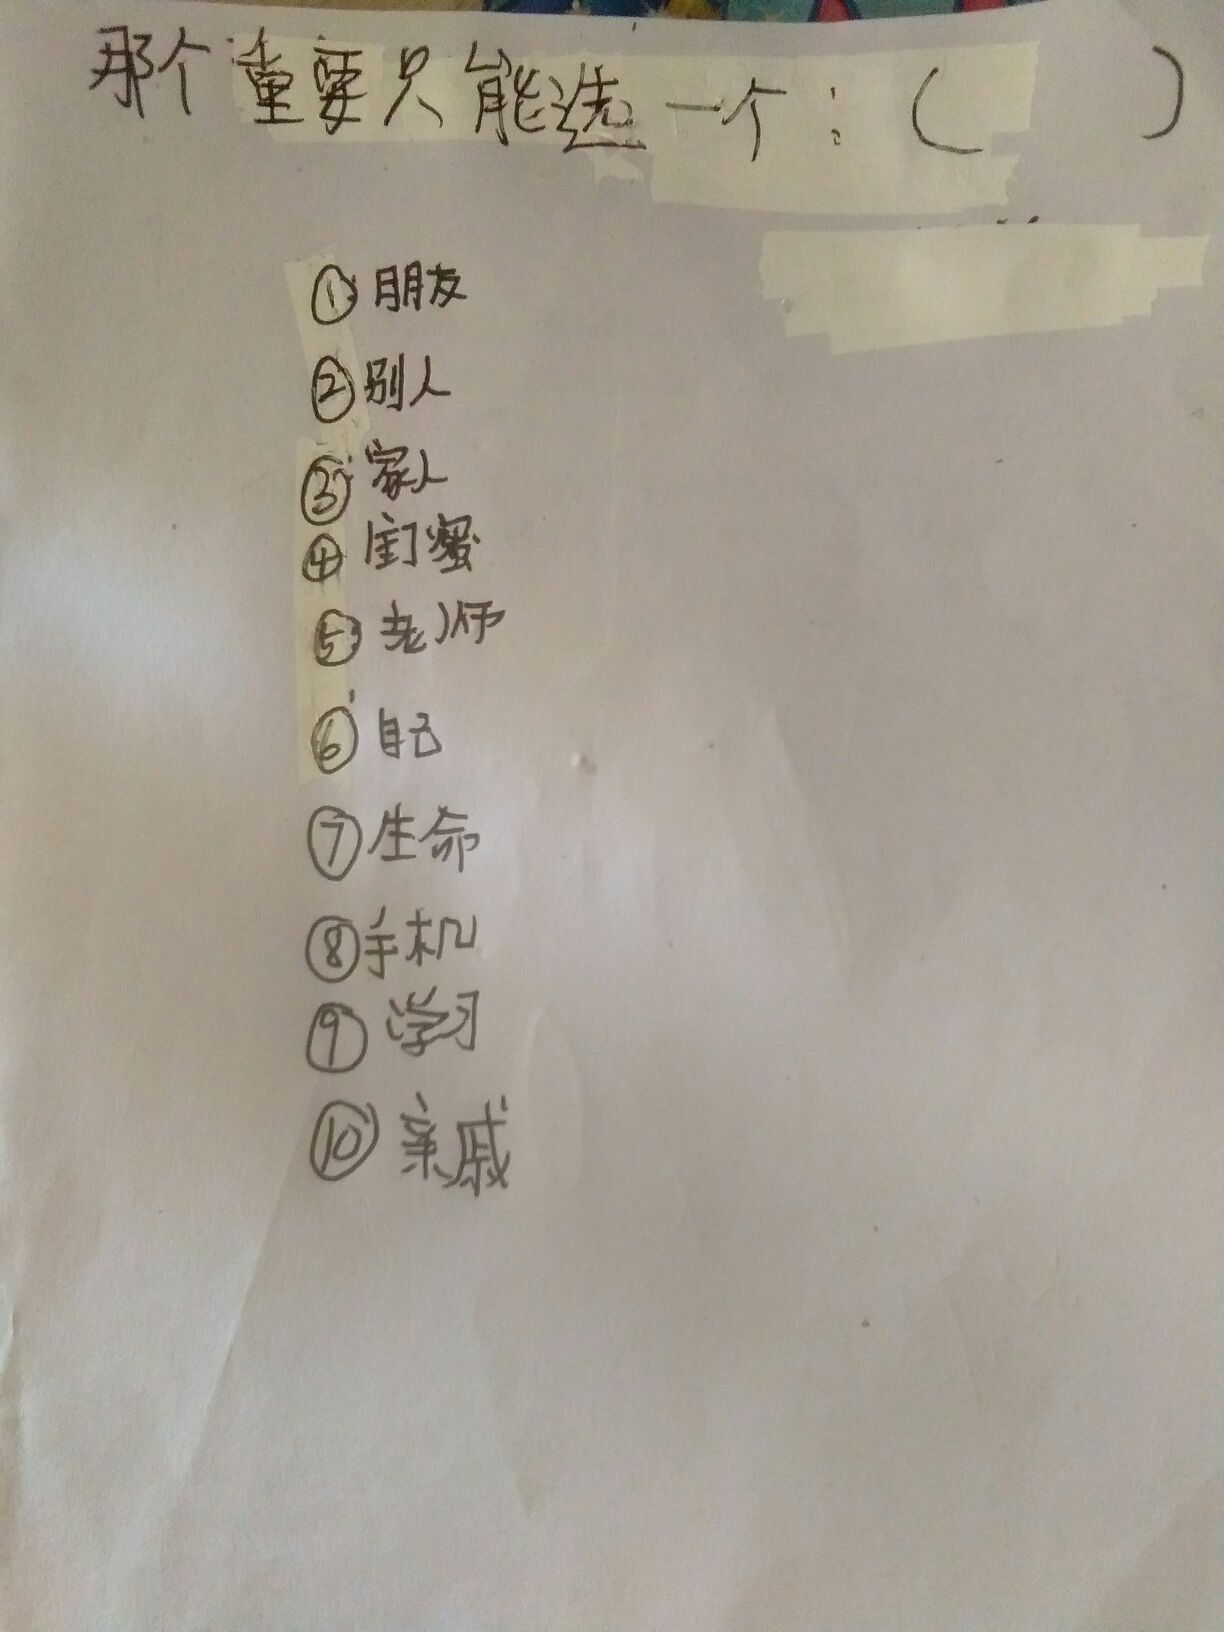 那个重要只能选一个：（ ）
①朋友
②别人
③家人
④闺蜜
⑤老师
⑥自己
⑦生命
⑧手机
⑨学习
⑩亲戚